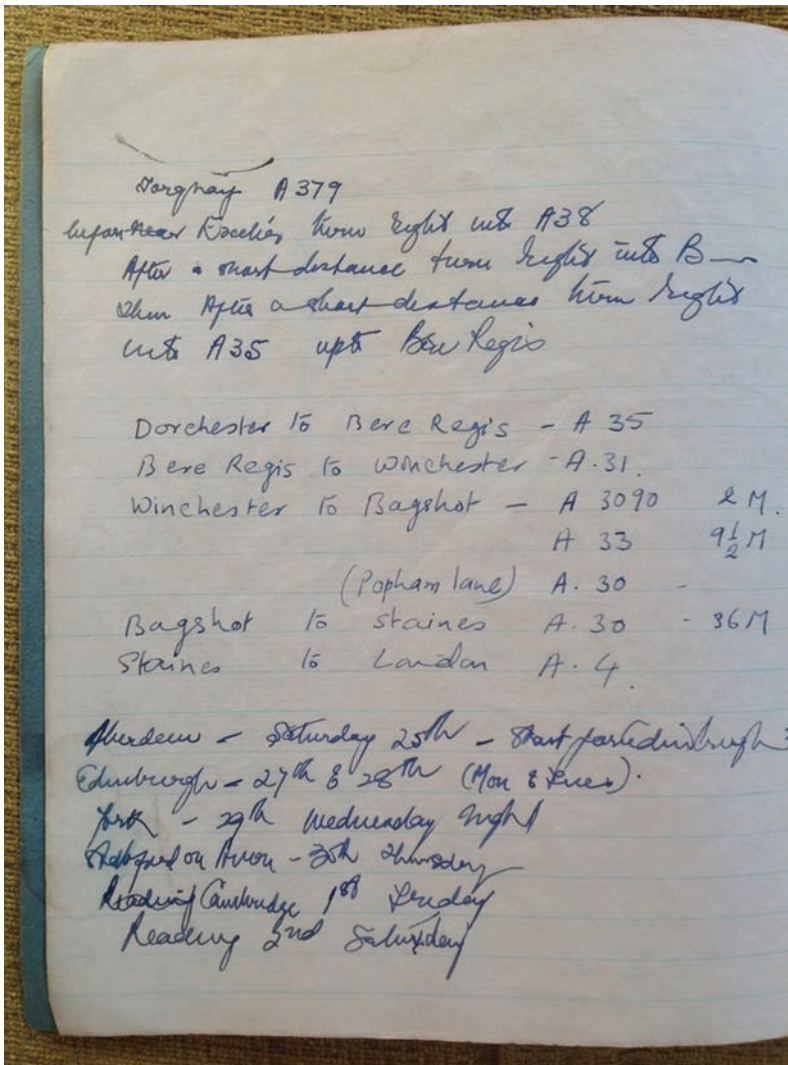 Torquay A379
before near Exeter turn right into A38
After a short distance turn right into B—
then After a short distance turn right
into A35 upto Bere Regis
Dorchester to Bere Regis - A 35
Bere Regis to Winchester - A.31.
Winchester to Bagshot - A 3090 2 M.
A 33 9 1/2 M
(Popham lane) A. 30 -
Bagshot to Staines A. 30 - 36 M
Staines to London A. 4.
Aberdeen - Saturday 25th - Start for Edinburgh
Edinburgh - 27th & 28th (Mon & Tues).
York - 29th Wednesday night
on Avon - 30th Thursday
Reading Cambridge 1st Friday
Reading 2nd Saturday